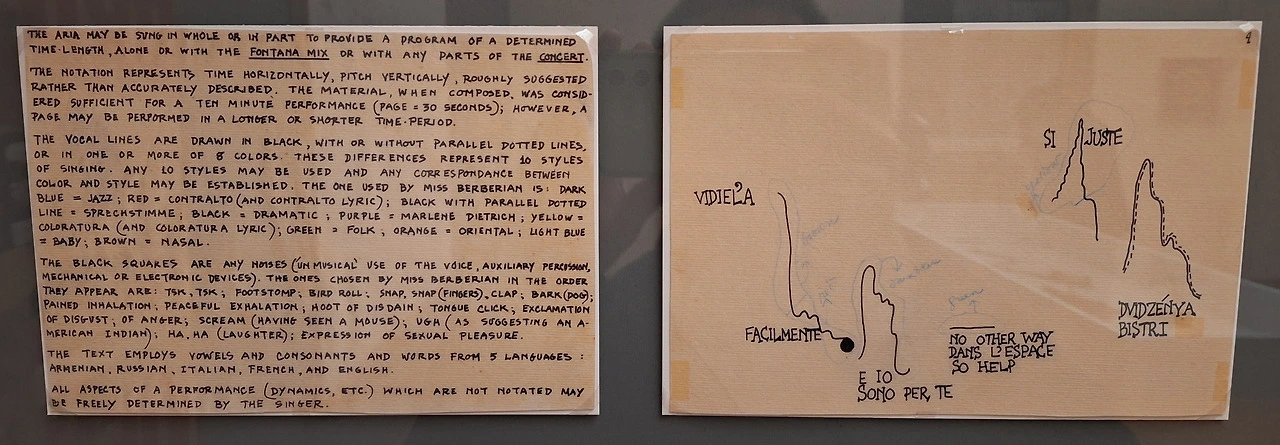 THE ARIA MAY BE SUNG IN WHOLE OR IN PART TO PROVIDE A PROGRAM OF A DETERMINED
TIME-LENGTH, ALONE OR WITH THE FONTANA MIX OR WITH ANY PARTS OF THE CONCERT.
THE NOTATION REPRESENTS TIME HORIZONTALLY, PITCH VERTICALLY, ROUGHLY SUGGESTED
RATHER THAN ACCURATELY DESCRIBED. THE MATERIAL, WHEN COMPOSED, WAS CONSID-
ERED SUFFICIENT FOR A TEN MINUTE PERFORMANCE (PAGE = 30 SECONDS); HOWEVER, A
PAGE MAY BE PERFORMED IN A LONGER OR SHORTER TIME-PERIOD.
THE VOCAL LINES ARE DRAWN IN BLACK, WITH OR WITHOUT PARALLEL DOTTED LINES,
OR IN ONE OR MORE OF 8 COLORS. THESE DIFFERENCES REPRESENT 10 STYLES
OF SINGING. ANY 10 STYLES MAY BE USED AND ANY CORRESPONDANCE BETWEEN
COLOR AND STYLE MAY BE ESTABLISHED. THE ONE USED BY MISS BERBERIAN IS: DARK
BLUE = JAZZ; RED = CONTRALTO (AND CONTRALTO LYRIC); BLACK WITH PARALLEL DOTTED
LINE = SPRECHSTIMME; BLACK = DRAMATIC; PURPLE = MARLENE DIETRICH; YELLOW =
COLORATURA (AND COLORATURA LYRIC); GREEN = FOLK; ORANGE = ORIENTAL; LIGHT BLUE
= BABY; BROWN = NASAL.
THE BLACK SQUARES ARE ANY NOISES ('UN MUSICAL' USE OF THE VOICE, AUXILIARY PERCUSSION,
MECHANICAL OR ELECTRONIC DEVICES). THE ONES CHOSEN BY MISS BERBERIAN IN THE ORDER
THEY APPEAR ARE: TSK, TSK; FOOTSTOMP; BIRD ROLL; SNAP, SNAP (FINGERS), CLAP; BARK (DOG);
PAINED INHALATION; PEACEFUL EXHALATION; HOOT OF DISDAIN; TONGUE CLICK; EXCLAMATION
OF DISGUST; OF ANGER; SCREAM (HAVING SEEN A MOUSE); UGH (AS SUGGESTING AN A-
MERICAN INDIAN); HA, HA (LAUGHTER); EXPRESSION OF SEXUAL PLEASURE.
THE TEXT EMPLOYS VOWELS AND CONSONANTS AND WORDS FROM 5 LANGUAGES:
ARMENIAN, RUSSIAN, ITALIAN, FRENCH, AND ENGLISH.
ALL ASPECTS OF A PERFORMANCE (DYNAMICS, ETC.) WHICH ARE NOT NOTATED MAY
BE FREELY DETERMINED BY THE SINGER.
SI JUSTE
VIDIELA
DVIDZÉNYA
BISTRI
FACILMENTE
NO OTHER WAY
DANS L'ESPACE
SO HELP
E IO
SONO PER TE